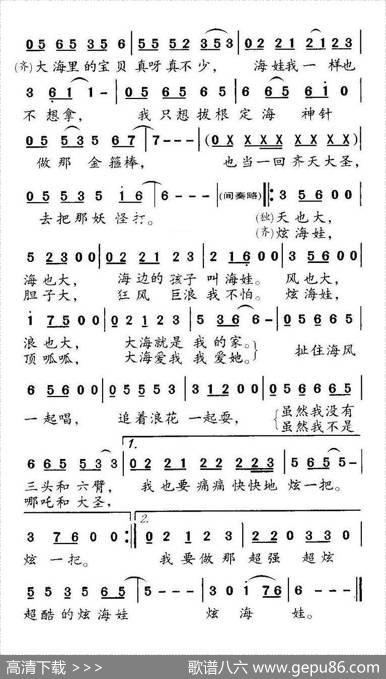 0 5 6 5 3 5 6 | 5 5 5 2 3 5 3 | 0 2 2 1 2 1 2 3 |
(齐)大海里的宝贝真呀真不少， 海娃我一样也
3 6 1 1 - | 0 5 6 5 5 | 6 6 5 6 1 0 |
不想拿， 我只想拔根定海 神针
0 5 5 3 5 6 7 | 7 - - - | (0 X X X X X X X X) |
做那 金箍棒， 也当一回齐天大圣，
0 5 5 3 5 1 6 | 6 - - - | (间奏略) ‖: 3 5 6 0 0 |
去把那妖怪打。 (独)天也大，
(齐)炫海娃，
5 2 3 0 0 | 0 2 1 2 3 | 2 1 6 0 0 | 3 5 6 0 0 |
海也大， 海边的孩子叫海娃。 风也大，
胆子大， 狂风 巨浪我不怕。 炫海娃，
1 7 5 0 0 | 0 2 1 2 3 | 5 3 6 6 - | 0 5 6 6 5 |
浪也大， 大海就是我的家。 扯住海风
顶呱呱， 大海爱我我爱她。
6 5 6 0 0 | 0 5 5 5 3 | 3 1 2 0 0 | 0 5 6 6 6 5 |
一起唱， 追着浪花一起耍， 虽然我没有
虽然我不是
1.
6 6 5 5 3 3 | 0 2 2 1 2 2 2 2 3 | 5 6 5 5 - |
三头和六臂， 我也要痛痛快快地 炫一把。
哪吒和大圣，
2.
3 7 6 0 0 :‖ 0 2 1 2 3 | 2 2 0 3 3 0 |
炫一把。 我要做那超强 超炫
5 5 3 5 6 5 | 5 - - - | 3 0 1 7 6 | 6 - - - ‖
超酷的炫海娃 炫 海 娃。
高清下载 >>> 歌谱八六 www.gepu86.com